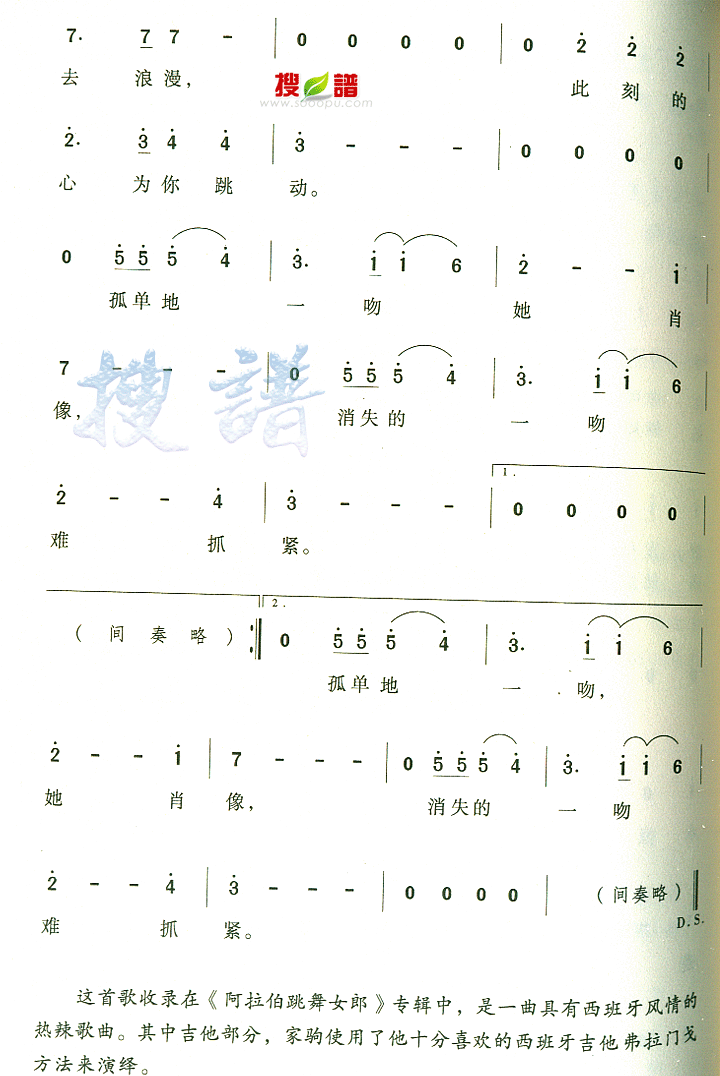 7. 7 7 - | 0 0 0 0 | 0 2 2 2
去 浪漫, 此 刻 的
搜谱
www.sooopu.com
2. 3 4 4 | 3 - - - | 0 0 0 0
心 为你 跳 动。
0 5 5 5 4 | 3. 1 1 6 | 2 - - 1
孤单地 一 吻 她 肖
7 - - - | 0 5 5 5 4 | 3. 1 1 6
像, 消失的 一 吻
搜譜
2 - - 4 | 3 - - - | 1. 0 0 0 0
难 抓 紧。
(间奏略) :|| 2. 0 5 5 5 4 | 3. 1 1 6
孤单地 一 吻,
2 - - 1 | 7 - - - | 0 5 5 5 4 | 3. 1 1 6
她 肖 像, 消失的 一 吻
2 - - 4 | 3 - - - | 0 0 0 0 | (间奏略) ||
难 抓 紧。 D.S.
这首歌收录在《阿拉伯跳舞女郎》专辑中，是一曲具有西班牙风情的
热辣歌曲。其中吉他部分，家驹使用了他十分喜欢的西班牙吉他弗拉门戈
方法来演绎。